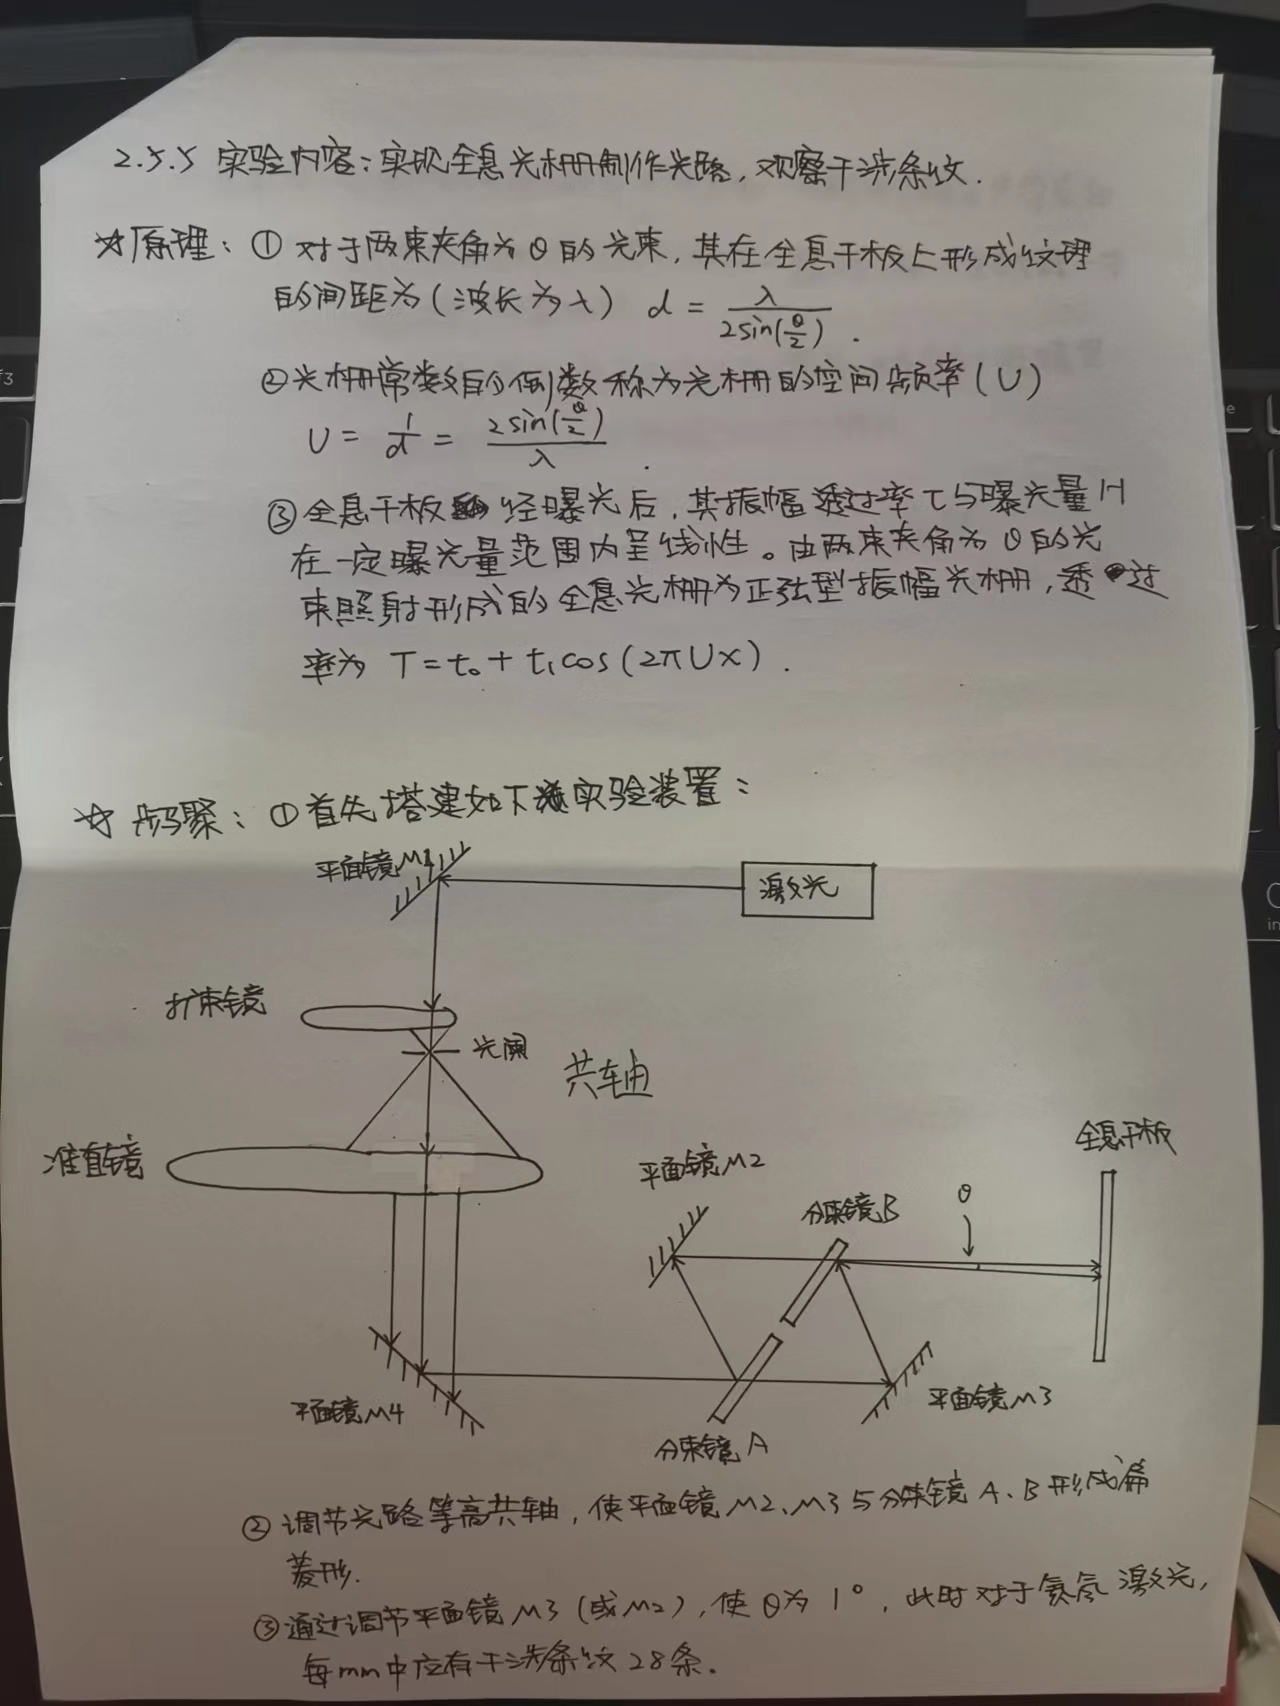 2.5.5 实验内容：实现全息光栅制作光路，观察干涉条纹.
☆原理：① 对于两束夹角为θ的光束，其在全息干板上形成纹理
的间距为（波长为λ） d = λ/2sin(θ/2) .
②光栅常数的倒数称为光栅的空间频率（U）
U = 1/d = 2sin(θ/2)/λ .
③全息干板经曝光后，其振幅透过率τ与曝光量H
在一定曝光量范围内呈线性。由两束夹角为θ的光
束照射形成的全息光栅为正弦型振幅光栅，透过
率为 T = t₀ + t₁cos(2πUx) .
☆ 步骤：①首先搭建如下实验装置：
平面镜M1
激光
扩束镜
光阑
共轴
准直镜
全息干板
平面镜M2
分束镜B
θ
平面镜M4
平面镜M3
分束镜A
② 调节光路等高共轴，使平面镜M2、M3与分束镜A、B形成扁
菱形.
③通过调节平面镜M3（或M2），使θ为1°，此时对于氦氖激光，
每mm中应有干涉条纹28条.
f3
in